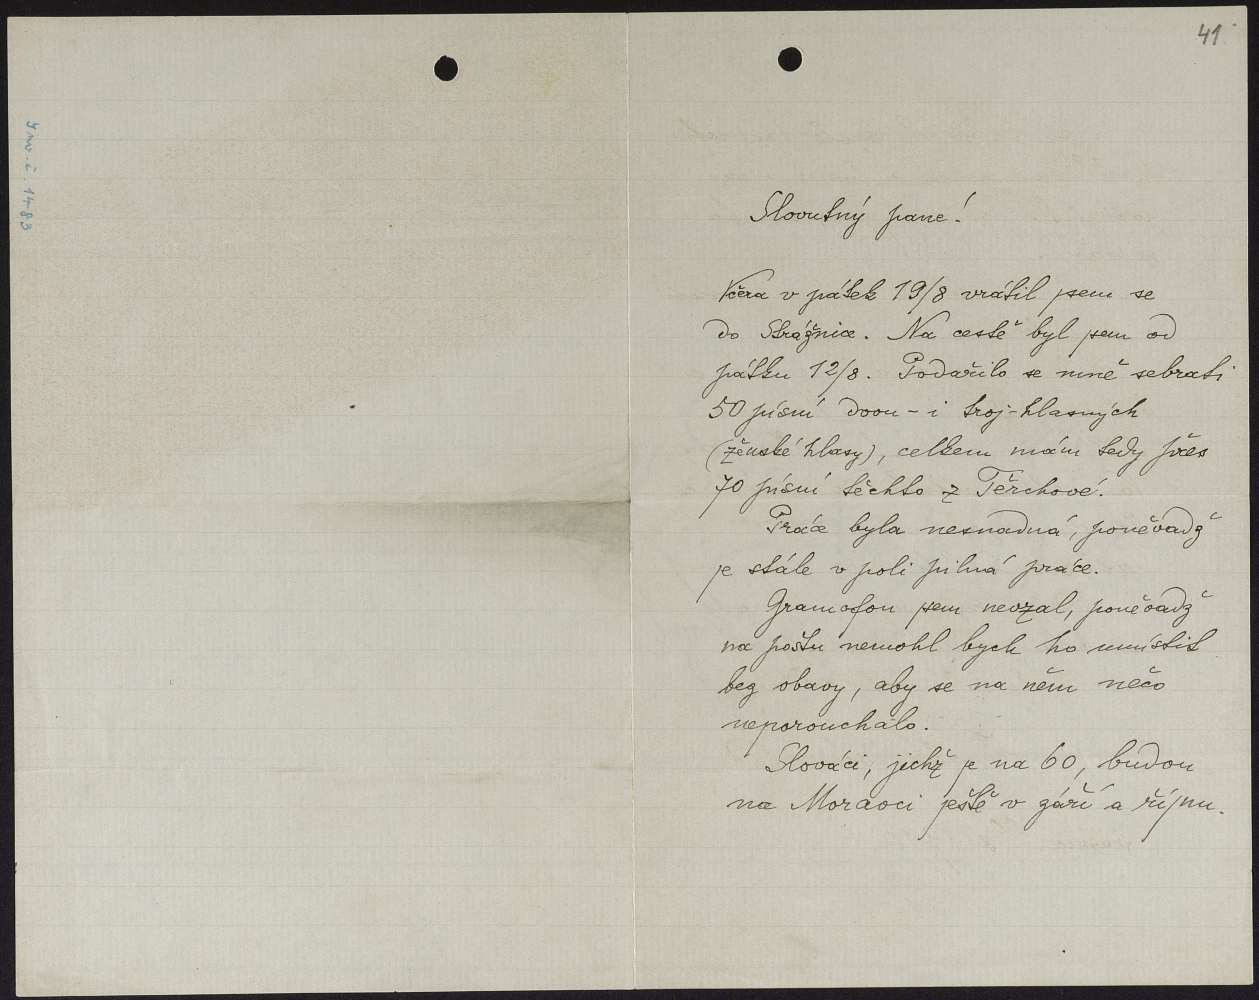 41.
Inv. č. 1483
Slovutný pane!
Včera v pátek 19/8 vrátil jsem se
do Strážnice. Na cestě byl jsem od
pátku 12/8. Podařilo se mně sebrati
50 písní dvou- i troj-hlasných
(ženské hlasy), celkem mám tedy přes
70 písní těchto z Těrchové.
Práce byla nesnadná, poněvadž
je stále v poli pilná práce.
Gramofon jsem nevzal, poněvadž
na poštu nemohl bych ho umístit
bez obavy, aby se na něm něco
neporouchalo.
Slováci, jichž je na 60, budou
na Moravě ještě v září a říjnu.